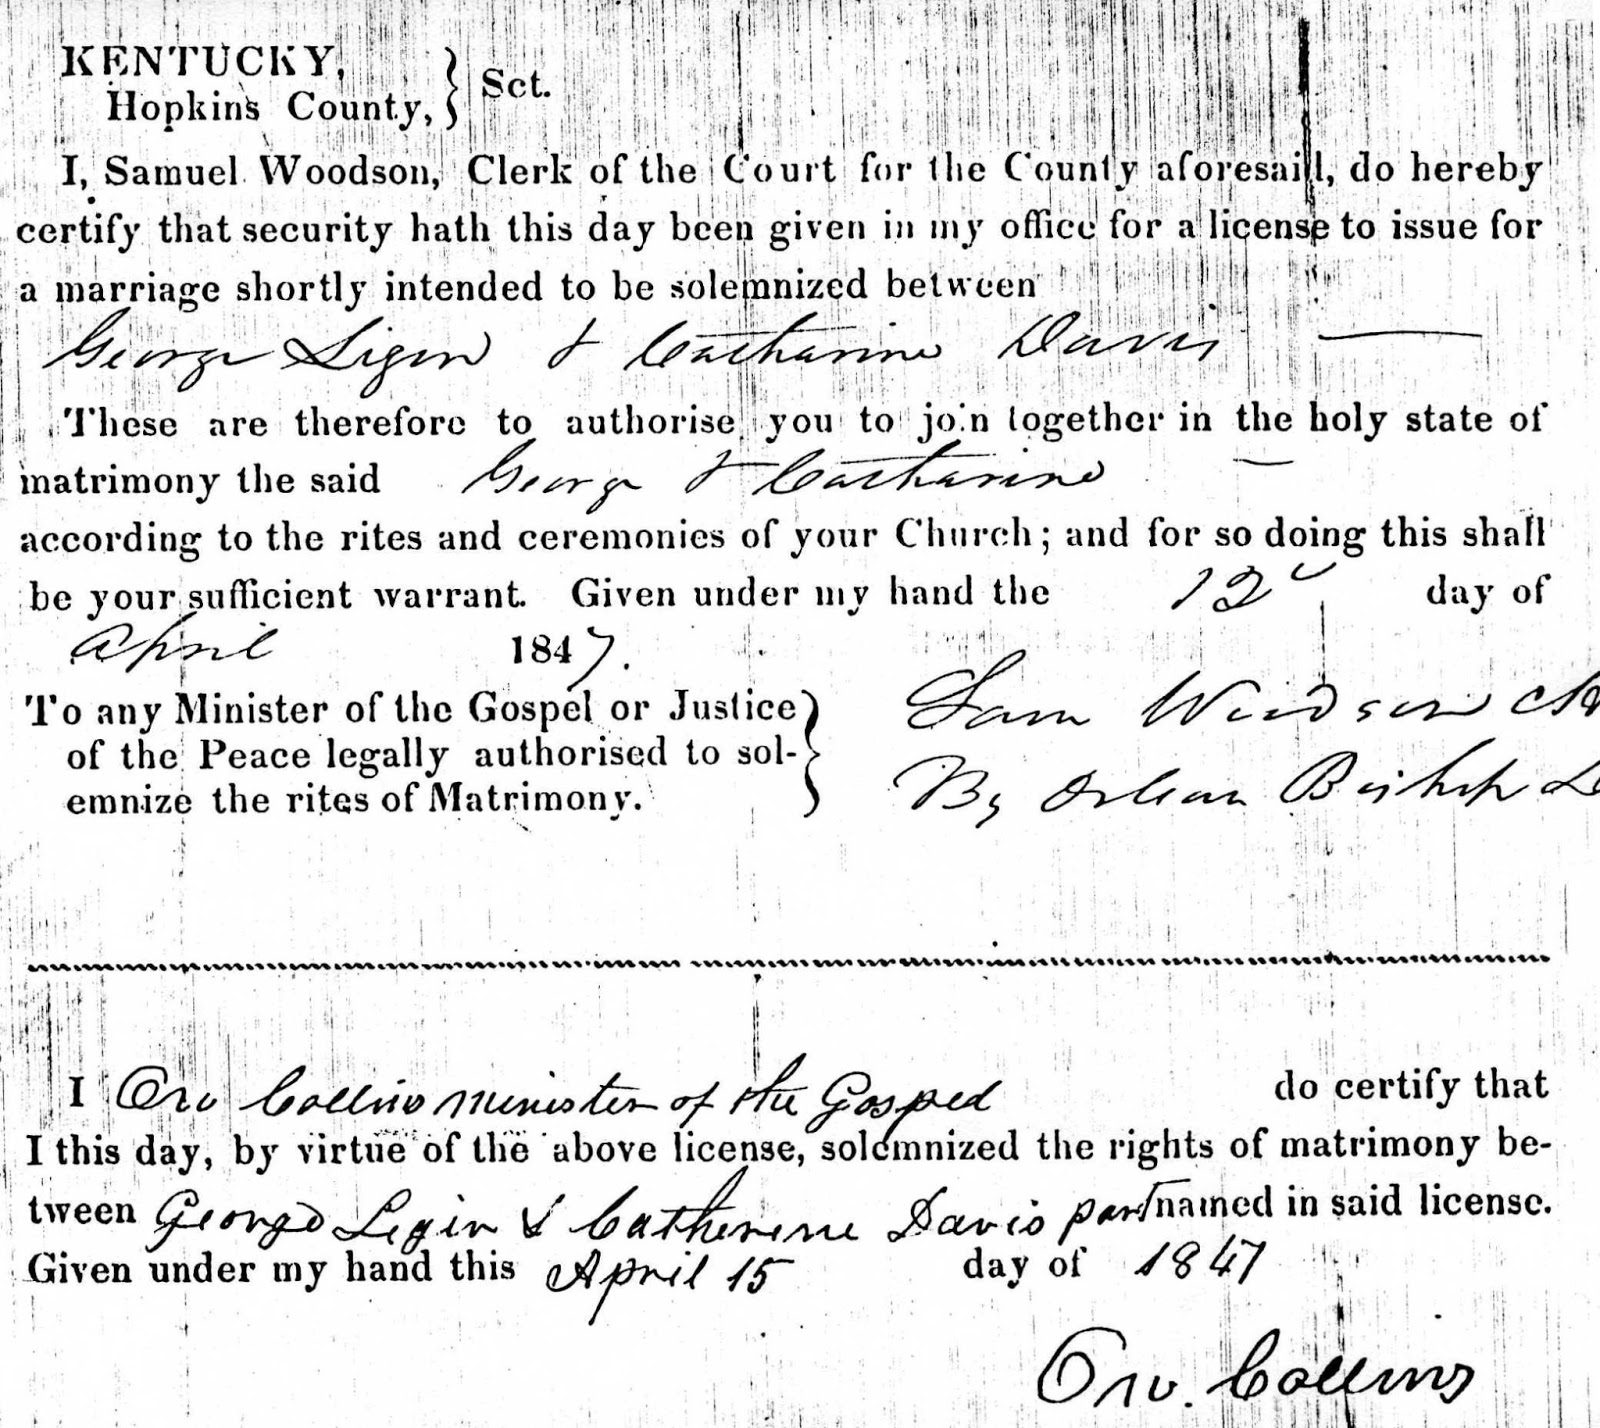 KENTUCKY,
Hopkins County, } Sct.
I, Samuel Woodson, Clerk of the Court for the County aforesaid, do hereby
certify that security hath this day been given in my office for a license to issue for
a marriage shortly intended to be solemnized between
George Ligon & Catharine Davis
These are therefore to authorise you to join together in the holy state of
matrimony the said George & Catharine
according to the rites and ceremonies of your Church; and for so doing this shall
be your sufficient warrant. Given under my hand the 12 day of
April 1847.
To any Minister of the Gospel or Justice
of the Peace legally authorised to sol-
emnize the rites of Matrimony.
Sam Woodson
By Orlean Bishop
I Orv Collins Minister of the Gosped do certify that
I this day, by virtue of the above license, solemnized the rights of matrimony be-
tween George Legin & Catherine Davis part named in said license.
Given under my hand this April 15 day of 1847
Orv. Collins